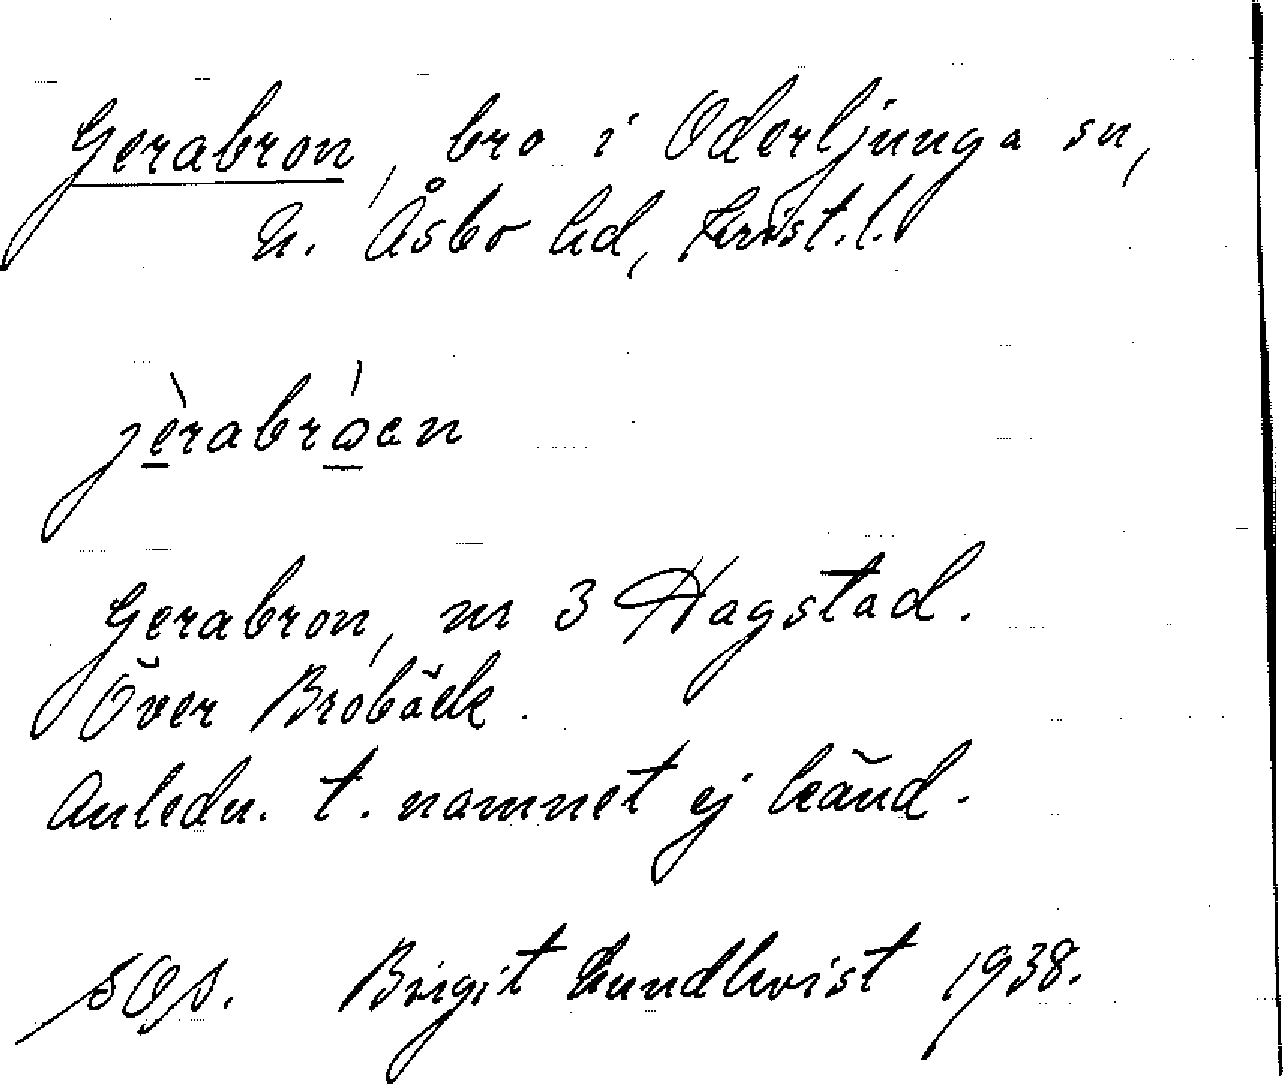 Gerabron, bro i Oderljunga sn,
N. Åsbo hd, Krist.l.
jèrabróen
Gerabron, nr 3 Hagstad.
Över Brobäck.
Anledn. t. namnet ej känd.
Brigit Lundkvist 1938.